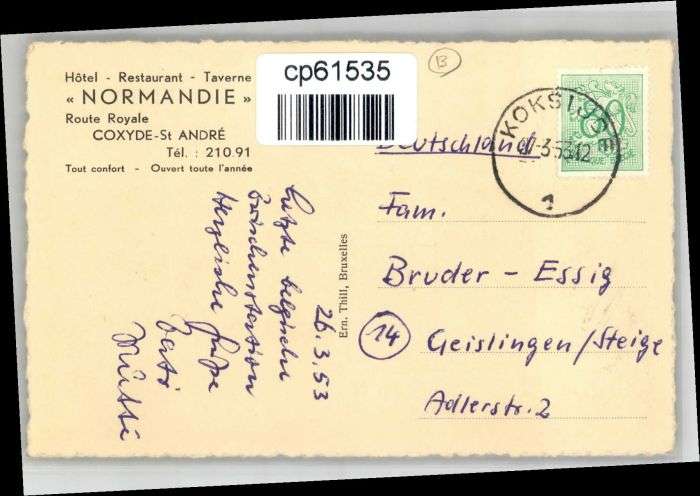 Hôtel - Restaurant - Taverne
« NORMANDIE »
Route Royale
COXYDE-St ANDRÉ
Tél. : 210.91
Tout confort - Ouvert toute l'année
cp61535
B
KOKSIJDE
-3.53 12
1
Deutschland
Fam.
Bruder - Essig
14 Geislingen/Steige
Adlerstr. 2
Ern. Thill, Bruxelles
26.3.53
Letzte belgische
Zwischenstation
Herzliche Grüße
Mutti